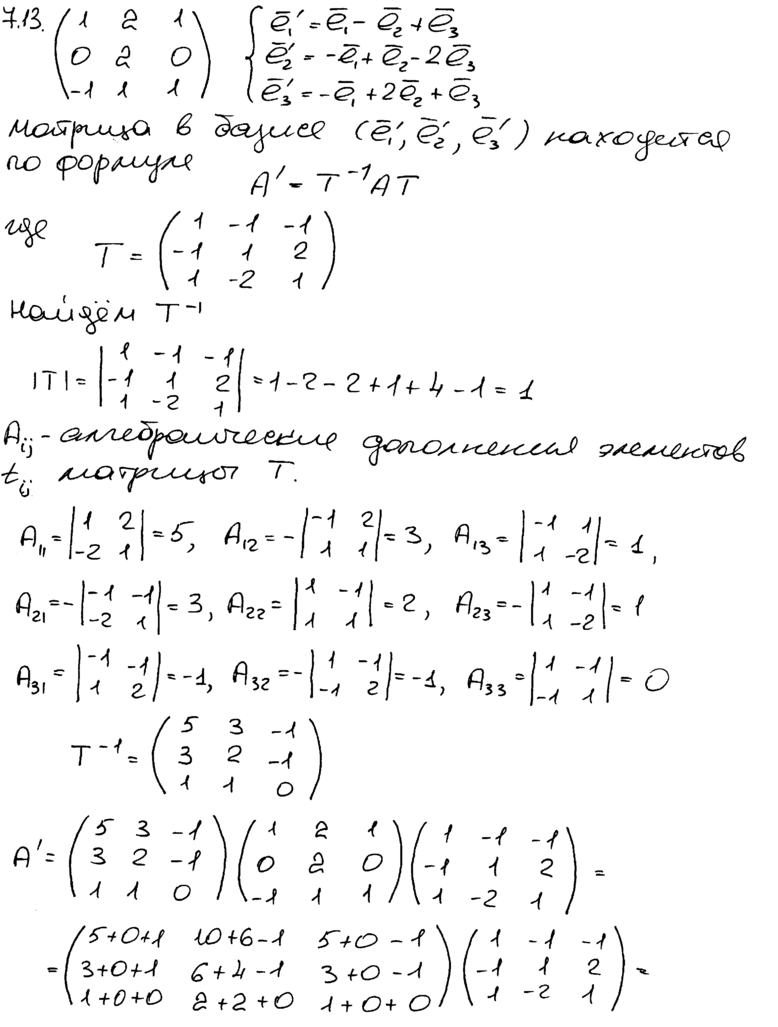 7.13. ( 1 2 1 ; 0 2 0 ; -1 1 1 ) { ē₁' = ē₁ - ē₂ + ē₃ ; ē₂' = -ē₁ + ē₂ - 2ē₃ ; ē₃' = -ē₁ + 2ē₂ + ē₃
матрица в базисе (ē₁', ē₂', ē₃') находится
по формуле
A' = T⁻¹AT
где
T = ( 1 -1 -1 ; -1 1 2 ; 1 -2 1 )
найдём T⁻¹
|T| = | 1 -1 -1 ; -1 1 2 ; 1 -2 1 | = 1-2-2+1+4-1 = 1
Aᵢⱼ - алгебраические дополнения элементов
tᵢⱼ матрицы T.
A₁₁ = | 1 2 ; -2 1 | = 5, A₁₂ = -| -1 2 ; 1 1 | = 3, A₁₃ = | -1 1 ; 1 -2 | = 1,
A₂₁ = -| -1 -1 ; -2 1 | = 3, A₂₂ = | 1 -1 ; 1 1 | = 2, A₂₃ = -| 1 -1 ; 1 -2 | = 1
A₃₁ = | -1 -1 ; 1 2 | = -1, A₃₂ = -| 1 -1 ; -1 2 | = -1, A₃₃ = | 1 -1 ; -1 1 | = 0
T⁻¹ = ( 5 3 -1 ; 3 2 -1 ; 1 1 0 )
A' = ( 5 3 -1 ; 3 2 -1 ; 1 1 0 ) ( 1 2 1 ; 0 2 0 ; -1 1 1 ) ( 1 -1 -1 ; -1 1 2 ; 1 -2 1 ) =
= ( 5+0+1 10+6-1 5+0-1 ; 3+0+1 6+4-1 3+0-1 ; 1+0+0 2+2+0 1+0+0 ) ( 1 -1 -1 ; -1 1 2 ; 1 -2 1 ) =